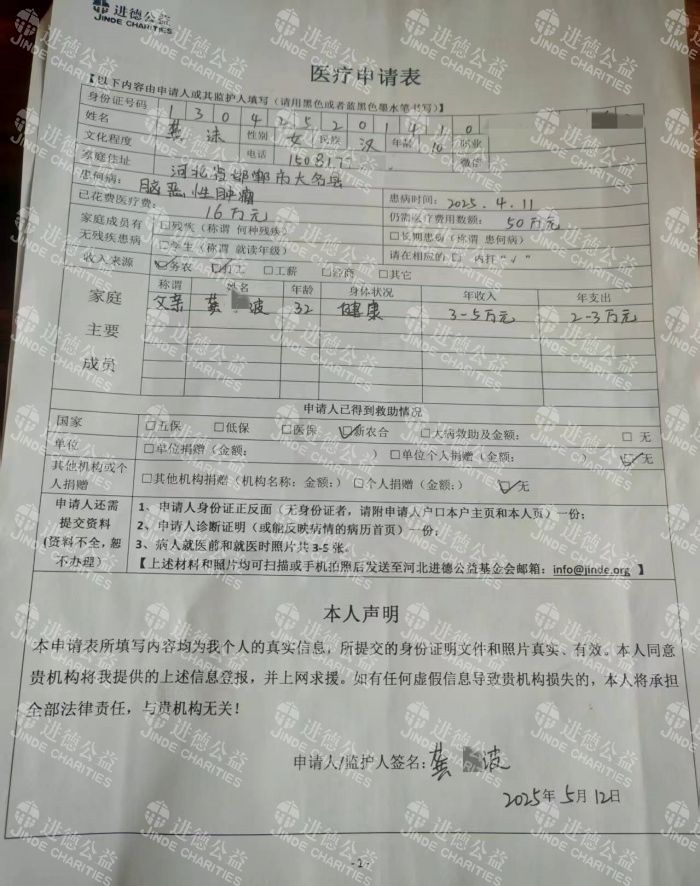 进德公益
JINDE CHARITIES
医疗申请表
【以下内容由申请人或其监护人填写（请用黑色或者蓝黑色墨水笔书写）】
身份证号码 1 3 0 4 2 5 2 0 1 4 1 0
姓名 龚 沫 性别 女 民族 汉 年龄 10 职业
文化程度 电话 150817 微信
家庭住址 河北省邯郸市大名县
患何病： 脑恶性肿瘤 患病时间： 2025.4.11
已花费医疗费： 16万元 仍需医疗费用数额： 50万元
家庭成员有无残疾患病 □残疾（称谓 何种残疾） □长期患病（称谓 患何病）
□学生（称谓 就读年级） 请在相应的 □ 内打“√”
收入来源 ☑务农 ☑打工 □工薪 □经商 □其它
家庭主要成员 称谓 姓名 年龄 身体状况 年收入 年支出
父亲 龚 波 32 健康 3-5万元 2-3万元
申请人已得到救助情况
国家 □五保 □低保 □医保 ☑新农合 □大病救助及金额： □ 无
单位 □单位捐赠（金额： ） □单位个人捐赠（金额： ） ☑无
其他机构或个人捐赠 □其他机构捐赠（机构名称：金额：） □个人捐赠（金额：） ☑无
申请人还需提交资料（资料不全，恕不办理）
1、申请人身份证正反面（无身份证者，请附申请人户口本户主页和本人页）一份；
2、申请人诊断证明（或能反映病情的病历首页）一份；
3、病人就医前和就医时照片共 3-5 张。
【上述材料和照片均可扫描或手机拍照后发送至河北进德公益基金会邮箱：info@jinde.org 】
本人声明
本申请表所填写内容均为我个人的真实信息，所提交的身份证明文件和照片真实、有效。本人同意
贵机构将我提供的上述信息登报，并上网求援。如有任何虚假信息导致贵机构损失的，本人将承担
全部法律责任，与贵机构无关！
申请人/监护人签名： 龚 波
2025年5月12日